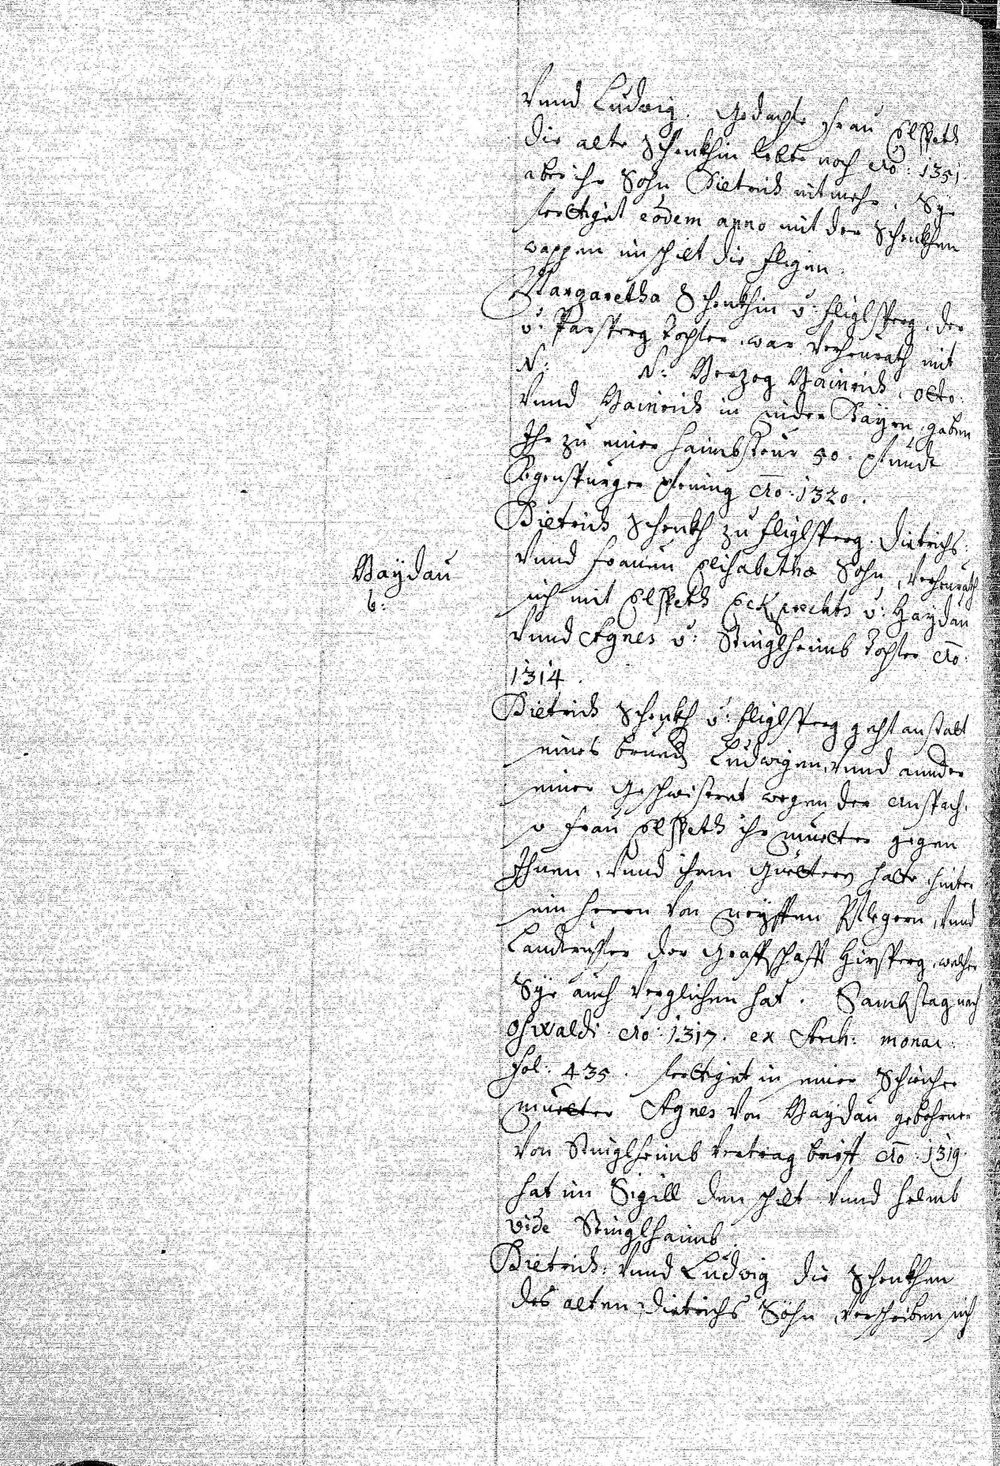 Vnnd Ludwig. Gedachte Frau Elspeth
die alte Schenkhin lebte noch Ao: 1351.
aber ihr Sohn Dietrich nit mehr. Sye
fertiget eodem anno mit der Schenkhen
wappen im schilt die fligen.
Margaretha Schenkhin v: Fliglsperg, der
v: Parsperg tochter, war verheurath mit
N: N: Herzog Hainrich, Otto:
Vnnd Hainrich in nider Bayrn, gaben
Ihr zu einer haimbsteur 50. pfundt
Regenspurger pfening Ao: 1320.
Dietrich Schenkh zu Fliglsperg. Dietrichs
Vnnd Frauen Elisabetha Sohn, verheurath
sich mit Elspeth Eckprechts v: Haydau
Vnnd Agnes v: Stinglheimb tochter Ao:
1314.
Haÿdau
6:
Dietrich Schenkh v: Fliglsperg geht anstatt
seines brueders Ludwigen, Vnnd annder
seiner Geschwistret wegen der Anspach.
v Frau Elspeth ihr muetter gegen
Ihnen, Vnnd ihren Güettern halte, hinter
ein herrn von neÿffen Pflegern, Vnnd
Landrichter der Graffschafft Hirsperg, welcher
Sye auch verglichen hat. Sambstag nach
Oswaldi Ao: 1317. ex Arch: monac:
fol: 435. fertiget in seiner Schwiher
muetter Agnes von Haydau gebohrne
von Stinglheimb vertrag brieff Ao: 1319.
hat im Sigill den schilt Vnnd helmb
vide Stinglhaimb.
Dietrich: Vnnd Ludwig die Schenkhen
des alten Dietrichs Söhn, verschreiben sich